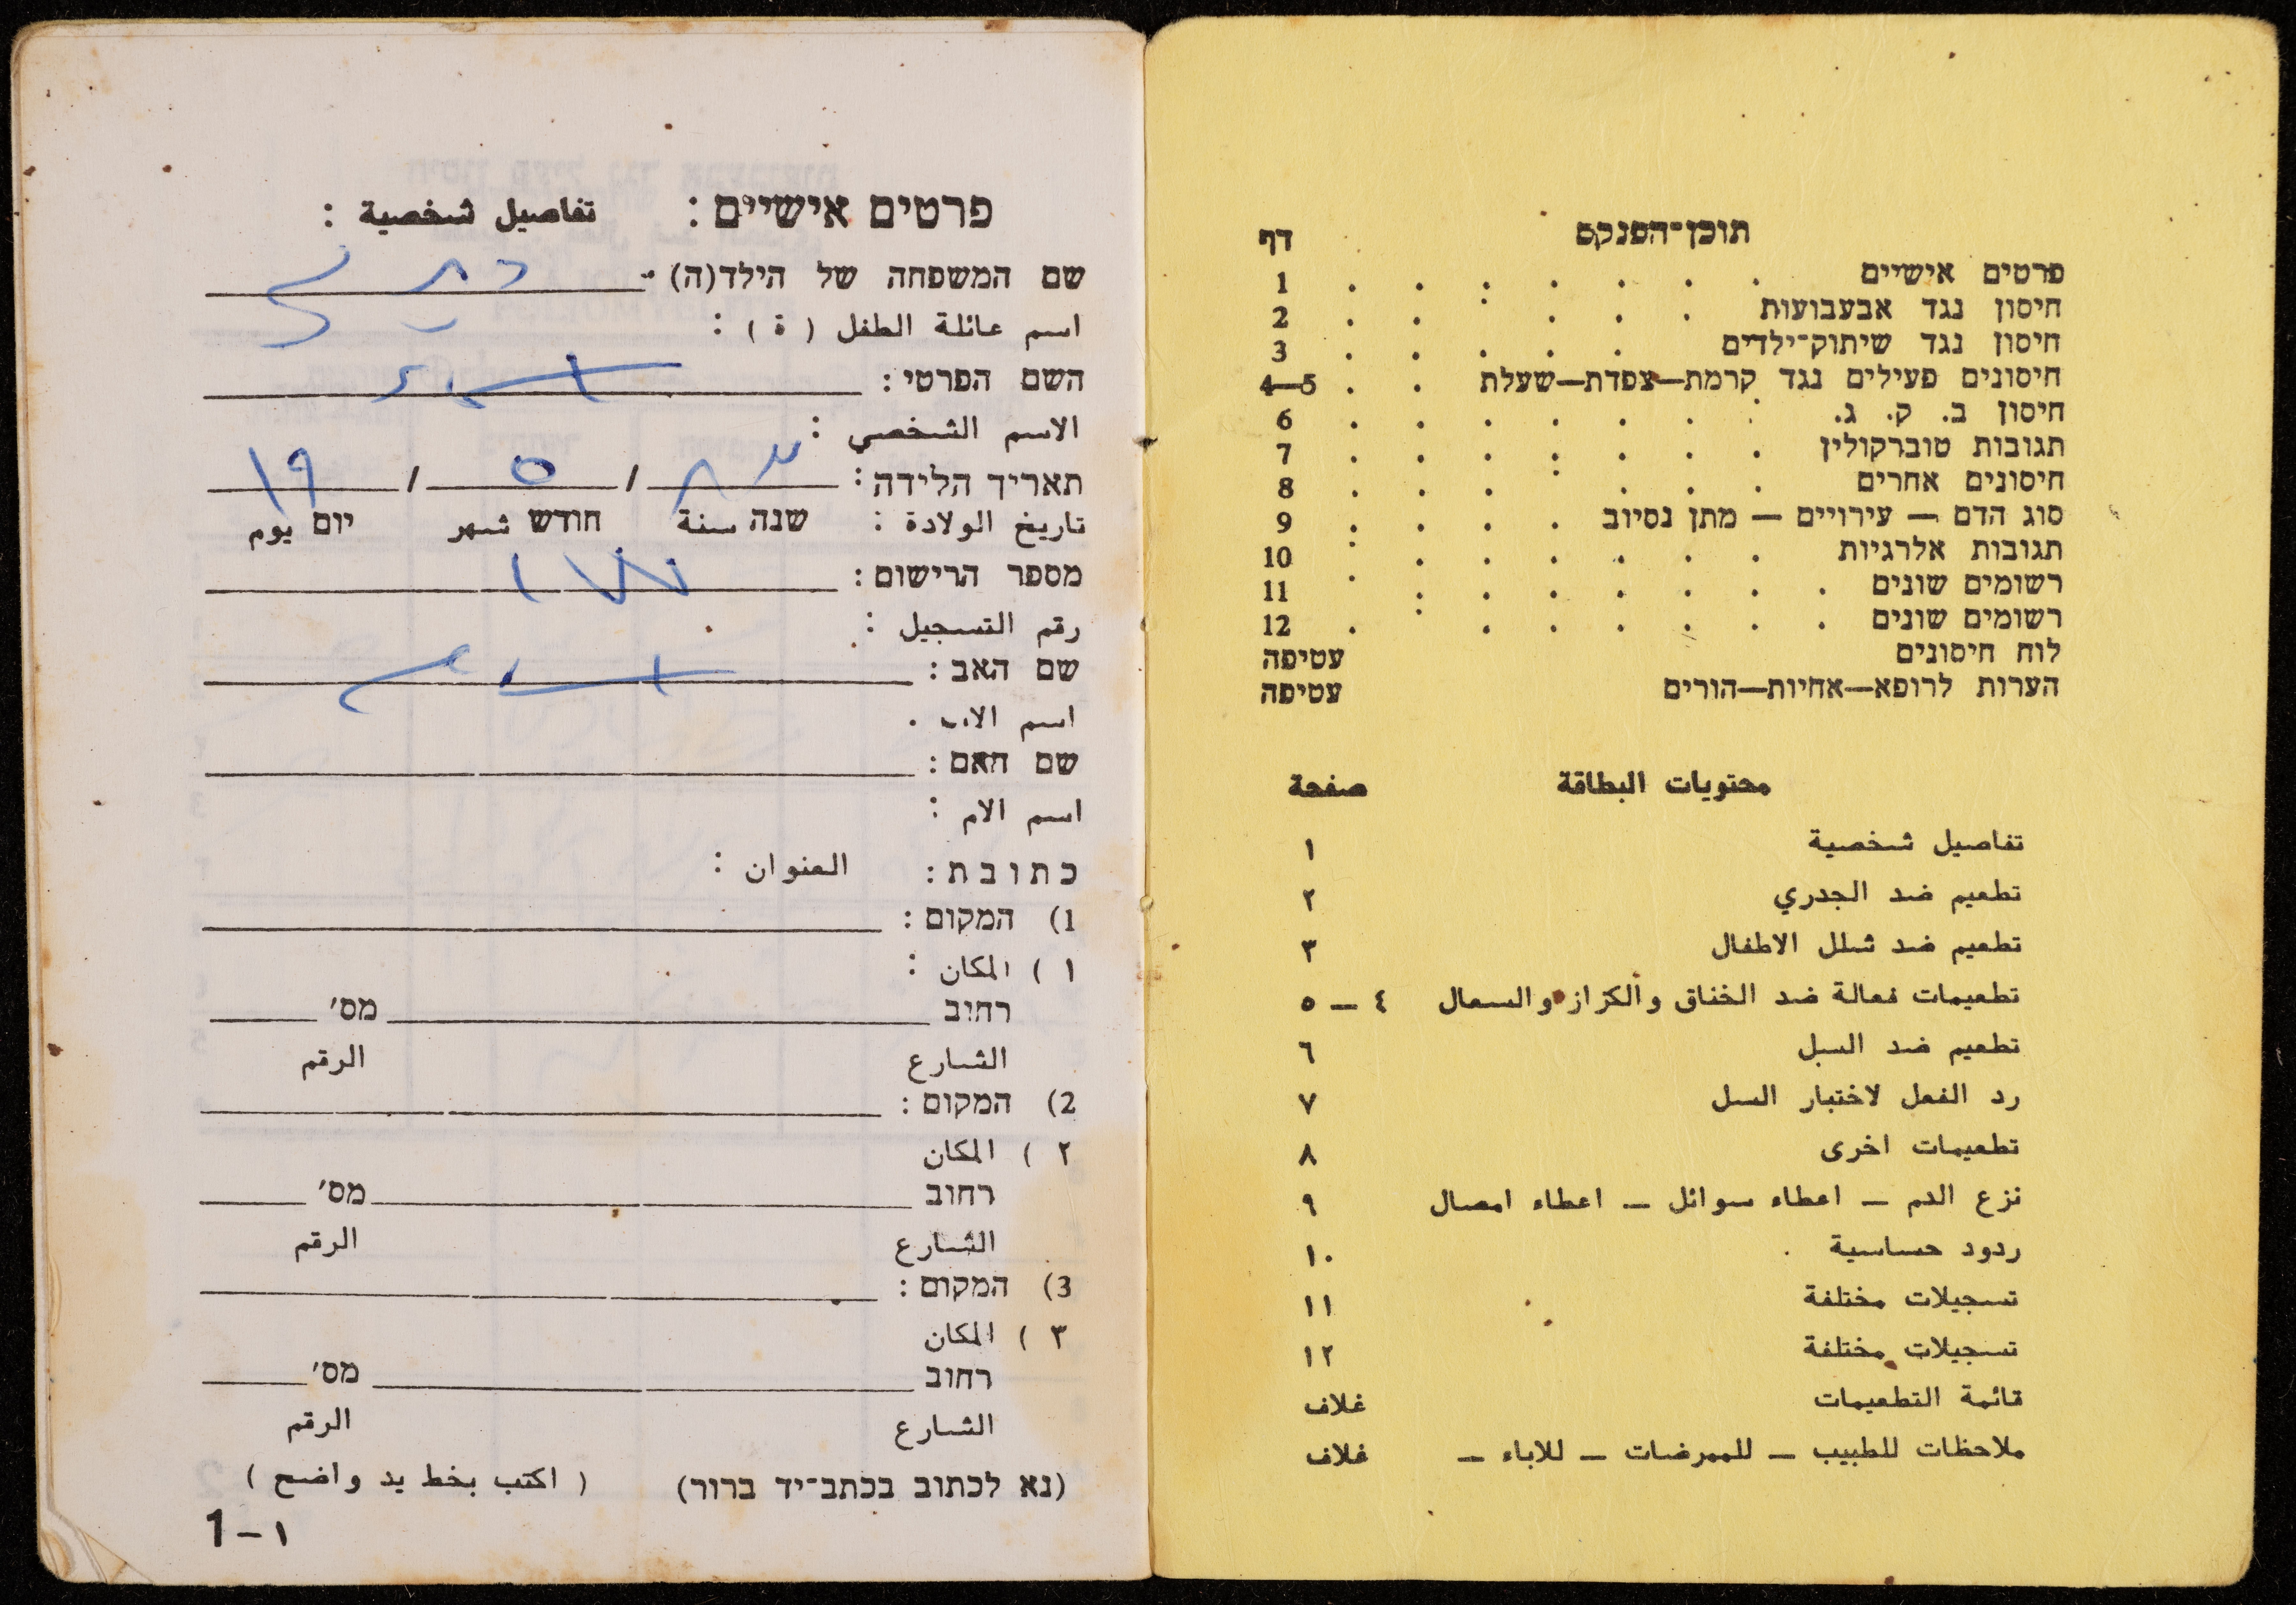 תוכן־הפנקס דף
פרטים אישיים . . . . . . . 1
חיסון נגד אבעבועות . . . . . 2
חיסון נגד שיתוק־ילדים . . . . . 3
חיסונים פעילים נגד קרמת—צפדת—שעלת . . 4—5
חיסון ב. ק. ג. . . . . . . . 6
תגובות טוברקולין . . . . . . . 7
חיסונים אחרים . . . . . . . 8
סוג הדם — עירויים — מתן נסיוב . . . . 9
תגובות אלרגיות . . . . . . . 10
רשומים שונים . . . . . . . 11
רשומים שונים . . . . . . . 12
לוח חיסונים עטיפה
הערות לרופא—אחיות—הורים עטיפה
محتويات البطاقة صفحة
تفاصيل شخصية ١
تطعيم ضد الجدري ٢
تطعيم ضد شلل الاطفال ٣
تطعيمات فعالة ضد الخناق والكزاز والسعال ٤ – ٥
تطعيم ضد السل ٦
رد الفعل لاختبار السل ٧
تطعيمات اخرى ٨
نزع الدم – اعطاء سوائل – اعطاء امصال ٩
ردود حساسية ١٠
تسجيلات مختلفة ١١
تسجيلات مختلفة ١٢
قائمة التطعيمات غلاف
ملاحظات للطبيب – للممرضات – للاباء – غلاف
פרטים אישיים : تفاصيل شخصية :
שם המשפחה של הילד(ה)
اسم عائلة الطفل ( ة ) :
השם הפרטי :
الاسم الشخصي :
תאריך הלידה : / ٥ / ١٩
تاريخ الولادة : שנה سنة חודש شهر יום يوم
מספר הרישום :
رقم التسجيل :
שם האב :
اسم الاب .
שם האם :
اسم الام :
כתובת : العنوان :
1) המקום :
١ ) المكان :
רחוב מס׳
الشارع الرقم
2) המקום :
٢ ) المكان
רחוב מס׳
الشارع الرقم
3) המקום :
٣ ) المكان
רחוב מס׳
الشارع الرقم
(נא לכתוב בכתב־יד ברור) ( اكتب بخط يد واضح )
1 – ١